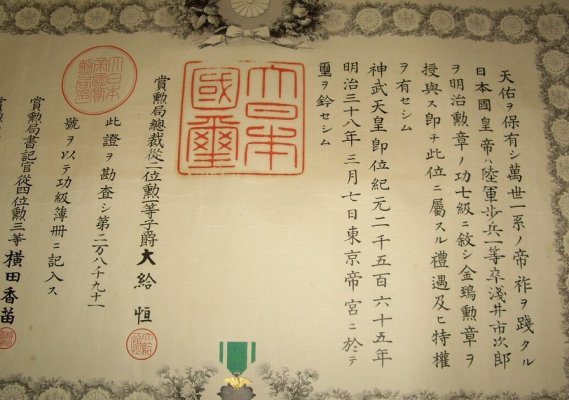 天佑ヲ保有シ萬世一系ノ帝祚ヲ踐タル
日本國皇帝ハ陸軍步兵一等卒淺井市次郎
ヲ明治勲章ノ功七級ニ敘シ金鵄勲章ヲ
授與ス即チ此位ニ屬スル禮遇及ヒ特權
ヲ有セシム
神武天皇即位紀元二千五百六十五年
明治三十八年三月七日東京帝宮ニ於テ
璽ヲ鈐セシム
大日本
國璽
賞勲局總裁從二位勲一等子爵大給恒
此證ヲ勘査シ第二万八千九十二
號ヲ以テ功級薄册ニ記入ス
賞勲局書記官從四位勲三等橫田香苗